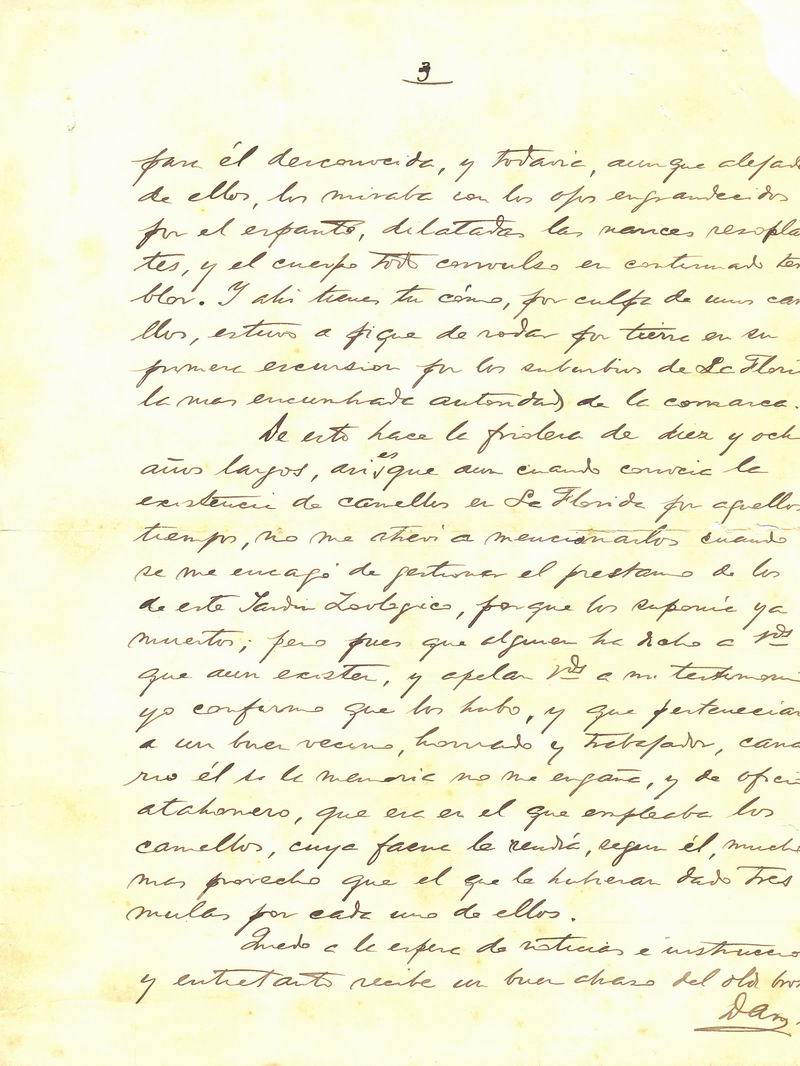 3
para él desconocida, y todavia, aunque alejad
de ellos, los miraba con los ojos engrandecidos
por el espanto, dilatadas las narices resopla
tes, y el cuerpo todo convulso en continuado te
blor. Y ahi tienes tu cómo, por culpa de unos ca
llos, estuvo a pique de rodar por tierra en su
primera excursion por los suburbios de La Flori
la mas encumbrada autoridad de la comarca.
De esto hace la friolera de diez y och
años largos, asi es que aun cuando conocia la
existencia de camellos en La Florida por aquellos
tiempos, no me atreví a mencionarlos cuando
se me encagó de gestionar el prestamo de los
de este Jardin Zoologico, porque los suponia ya
muertos; pero pues que alguien ha dicho a Vds
que aun existen, y apelan Vds a mi testimoni
yo confirmo que los hubo, y que pertenecian
a un buen vecino, honrado y trabajador, cana
rio él si la memoria no me engaña, y de ofici
atahonero, que era en el que empleaba los
camellos, cuya faena le rendía, segun él, mucho
mas provecho que el que le hubieran dado tres
mulas por cada uno de ellos.
Quedo a la espera de noticias e instruccio
y entretanto recibe un buen abrazo del old bro